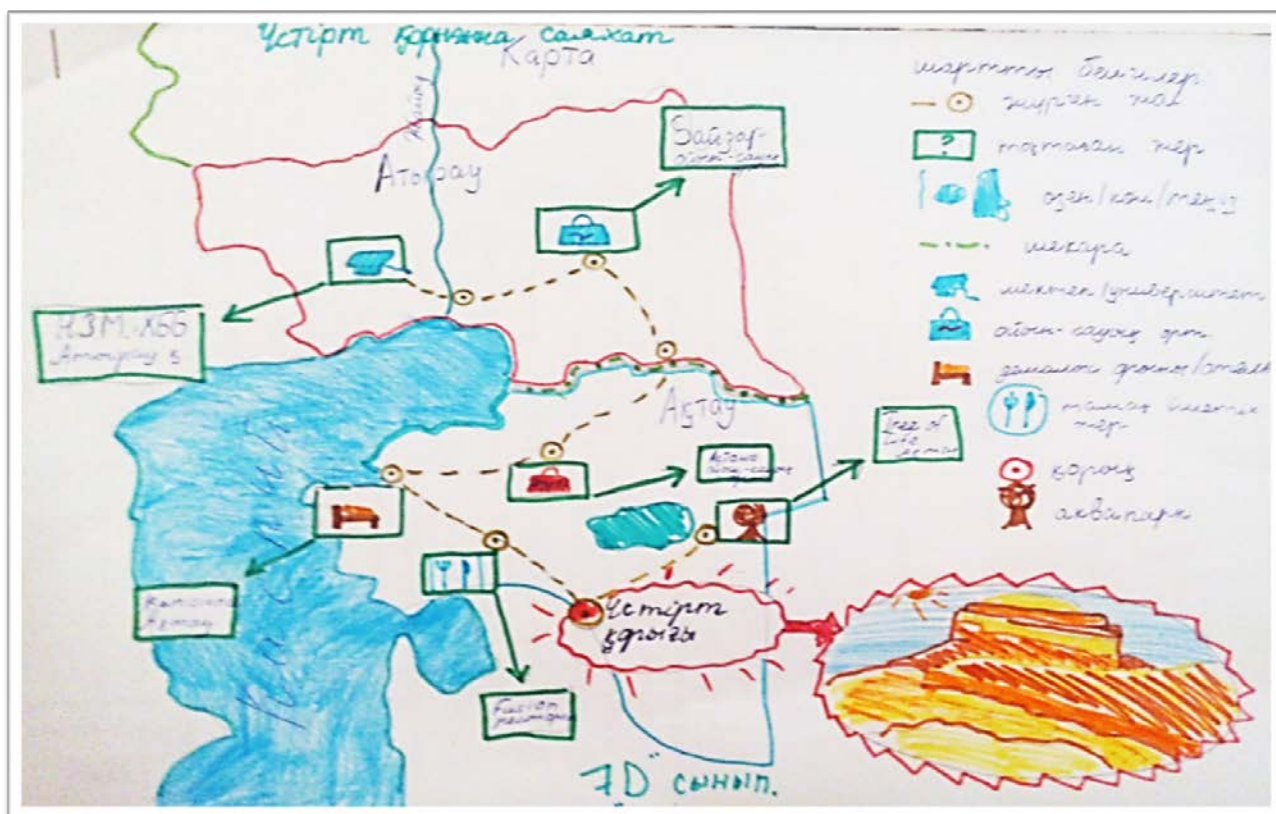 Үстірт қорығына саяхат
Карта
Жайық
Атырау
Байзар
ойын-сауық
НЗМ-ХББ
Атырау қ
Ақтау
Каспий
Astana
ойын-сауық
Tree of
Life
Ақтау
Fusion
ресторан
Үстірт
қорығы
7D сынып.
шартты белгілер
жүрген жол
?
тоқтаған жер
өзен/көл/теңіз
шекара
мектеп/университет
ойын-сауық орт.
демалыс орыны/отель
тамақ ішетін
жер
қорық
аквапарк